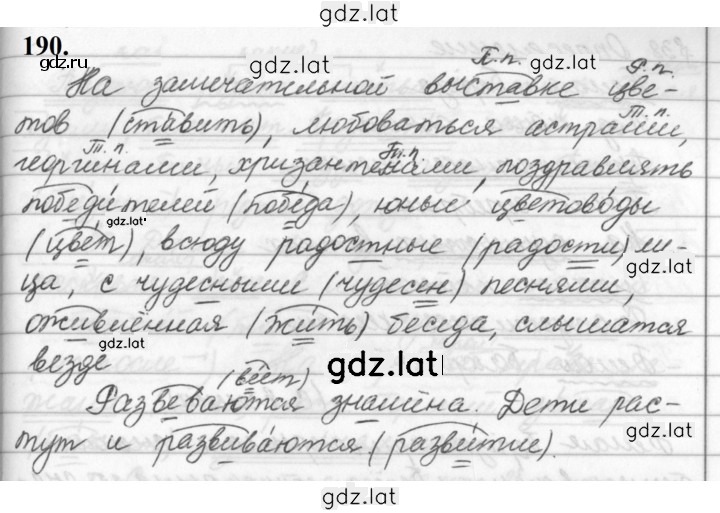 gdz.lat
190.
gdz.lat
gdz.lat
П.п. Р.п.
На замечательной выставке цве-
Т.п.
тов (ставить), любоваться астрами,
Т.п. Т.п.
георгинами, хризантемами, поздравлять
победителей (победа), юные цветоводы
gdz.lat
(цвет), всюду радостные (радости) ли-
gdz.lat
ца, с чудесными (чудесен) песнями,
оживлённая (жить) беседа, слышатся
gdz.lat
везде
gdz.lat
(веет)
Развеваются знамёна. Дети рас-
тут и развиваются (развитие).
gdz.lat
gdz.lat